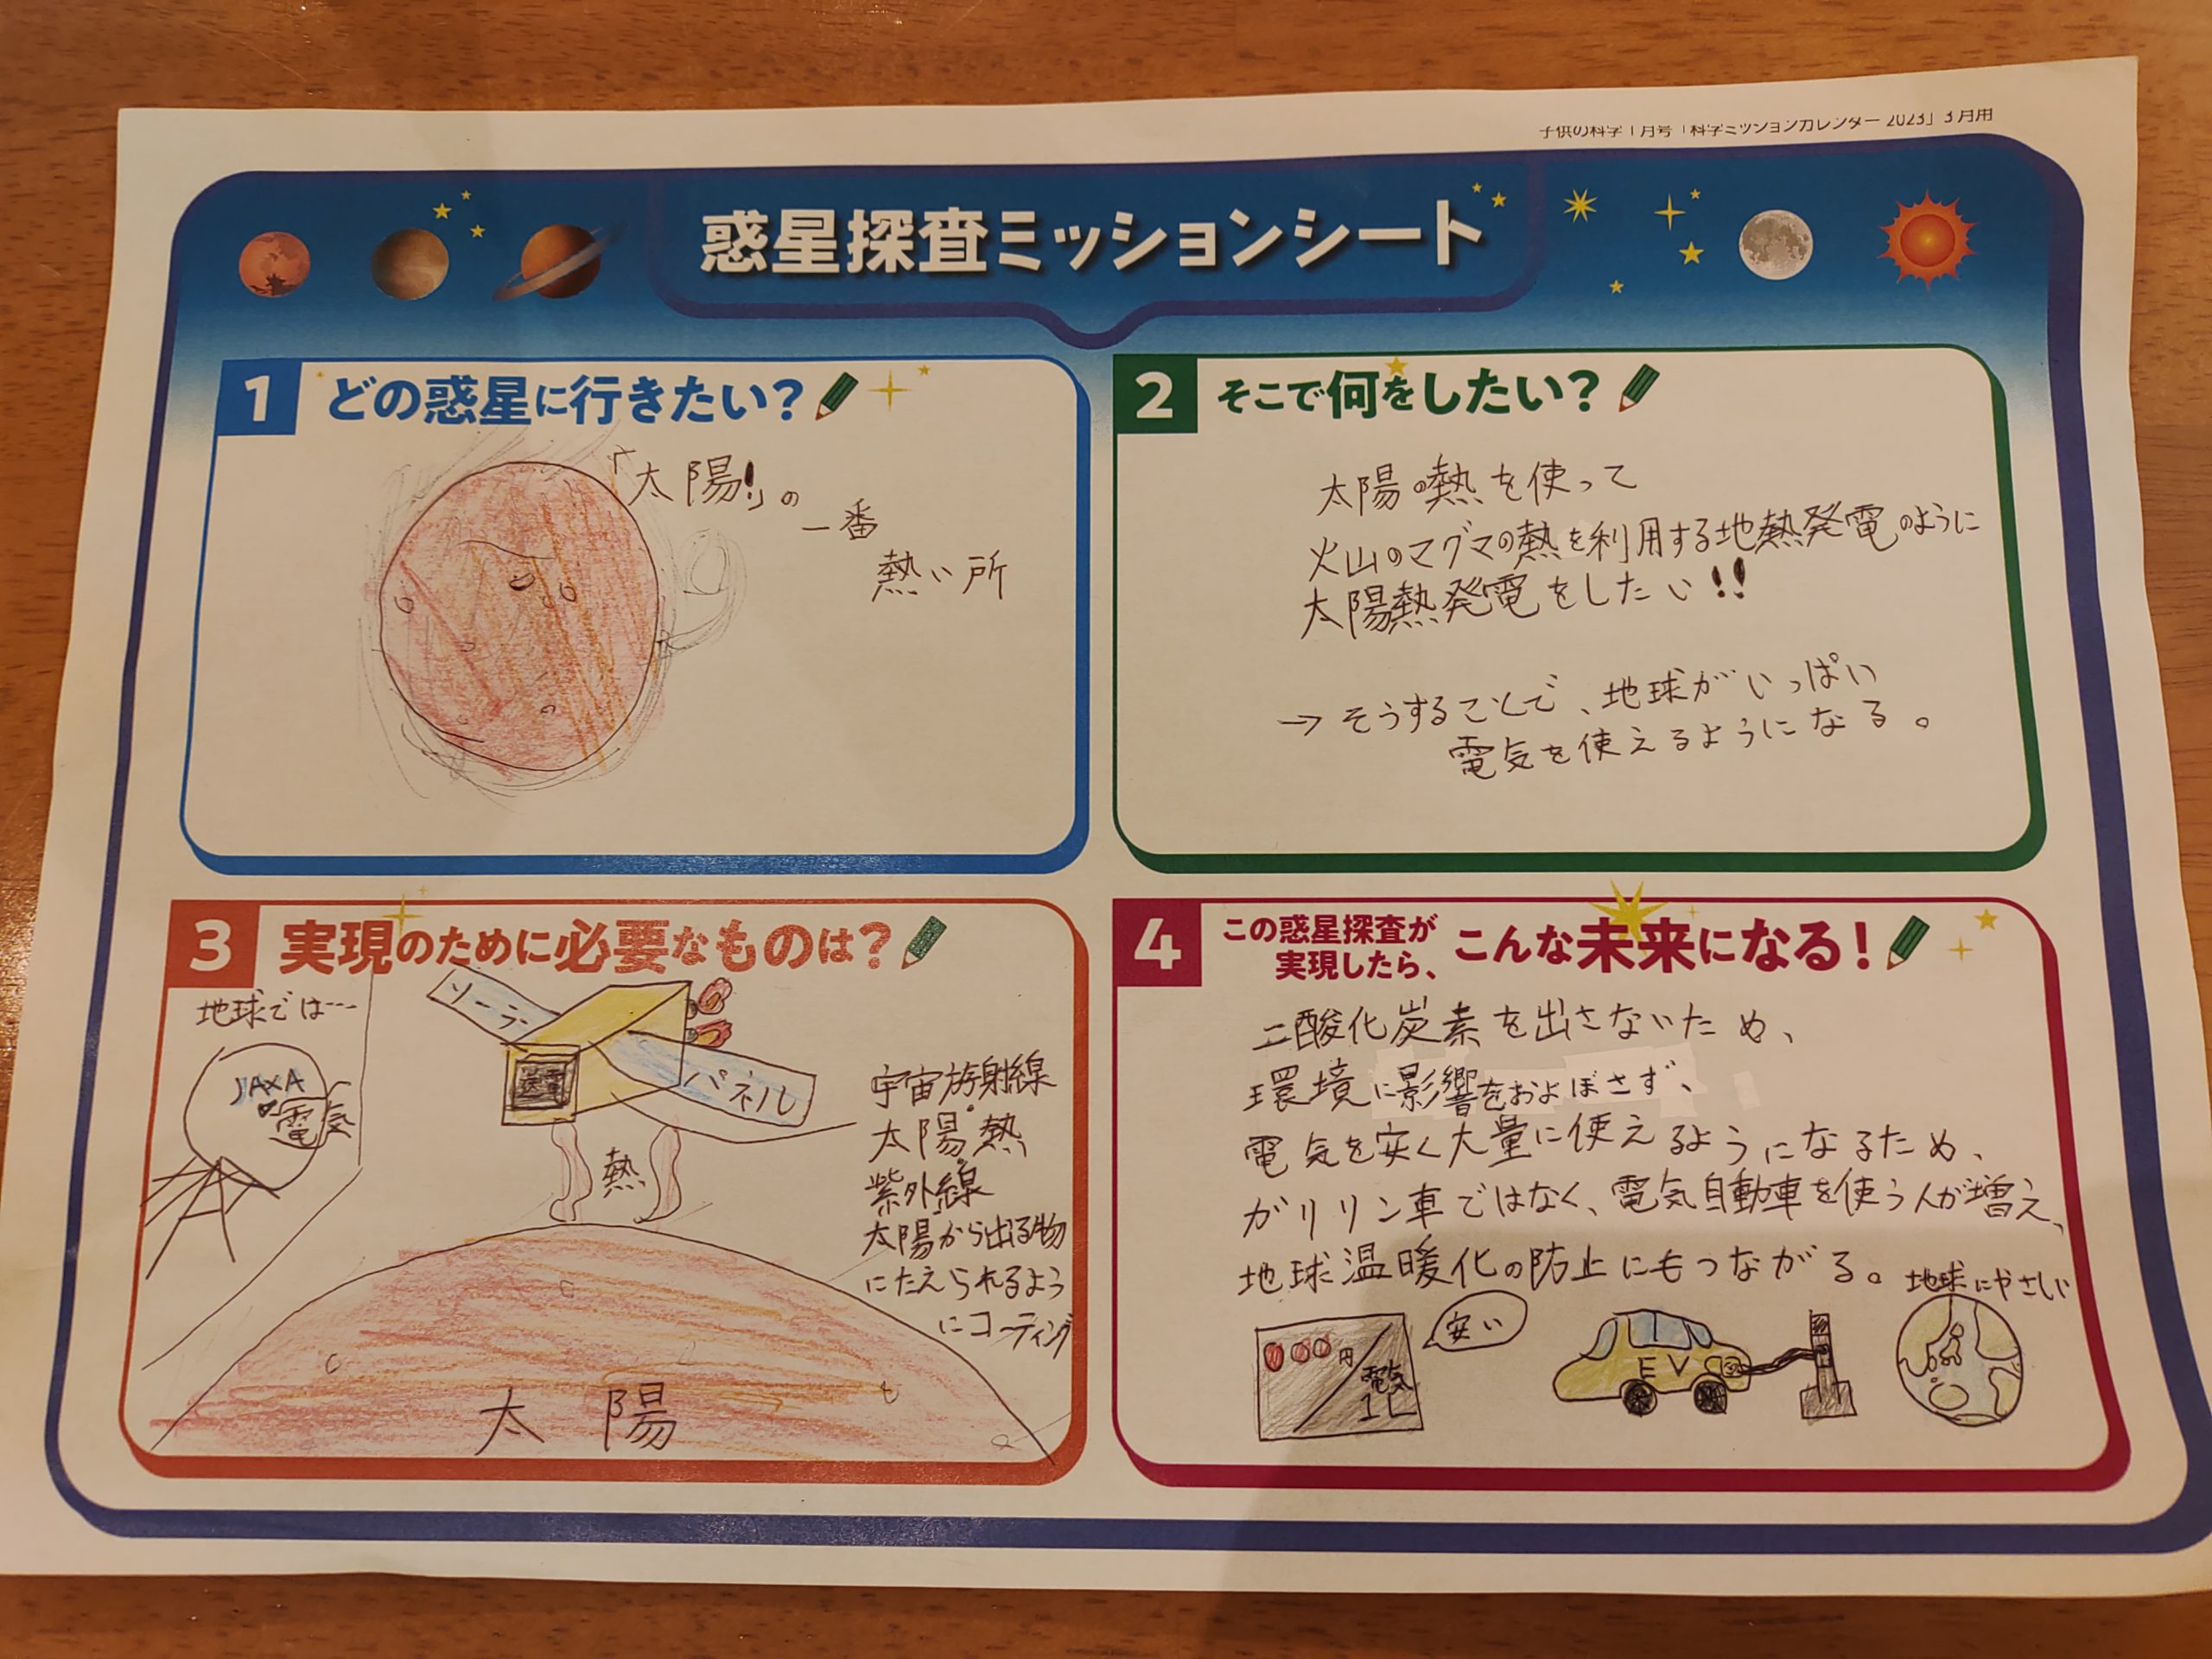 子供の科学1月号「科学ミッションカレンダー2023」3月用
惑星探査ミッションシート
1 どの惑星に行きたい?
「太陽!」の
一番
熱い所
2 そこで何をしたい?
太陽の熱を使って
火山のマグマの熱を利用する地熱発電のように
太陽熱発電をしたい!!
→そうすることで、地球がいっぱい
電気を使えるようになる。
3 実現のために必要なものは?
地球では…
JAXA
電気
ソーラー
パネル
送電
熱
宇宙放射線
太陽熱
紫外線
太陽から出る物
にたえられるよう
にコーティング
太陽
4 この惑星探査が
実現したら、こんな未来になる!
二酸化炭素を出さないため、
環境に影響をおよぼさず、
電気を安く大量に使えるようになるため、
ガソリン車ではなく、電気自動車を使う人が増え、
地球温暖化の防止にもつながる。
地球にやさしい
000円/電気1L
安い
EV